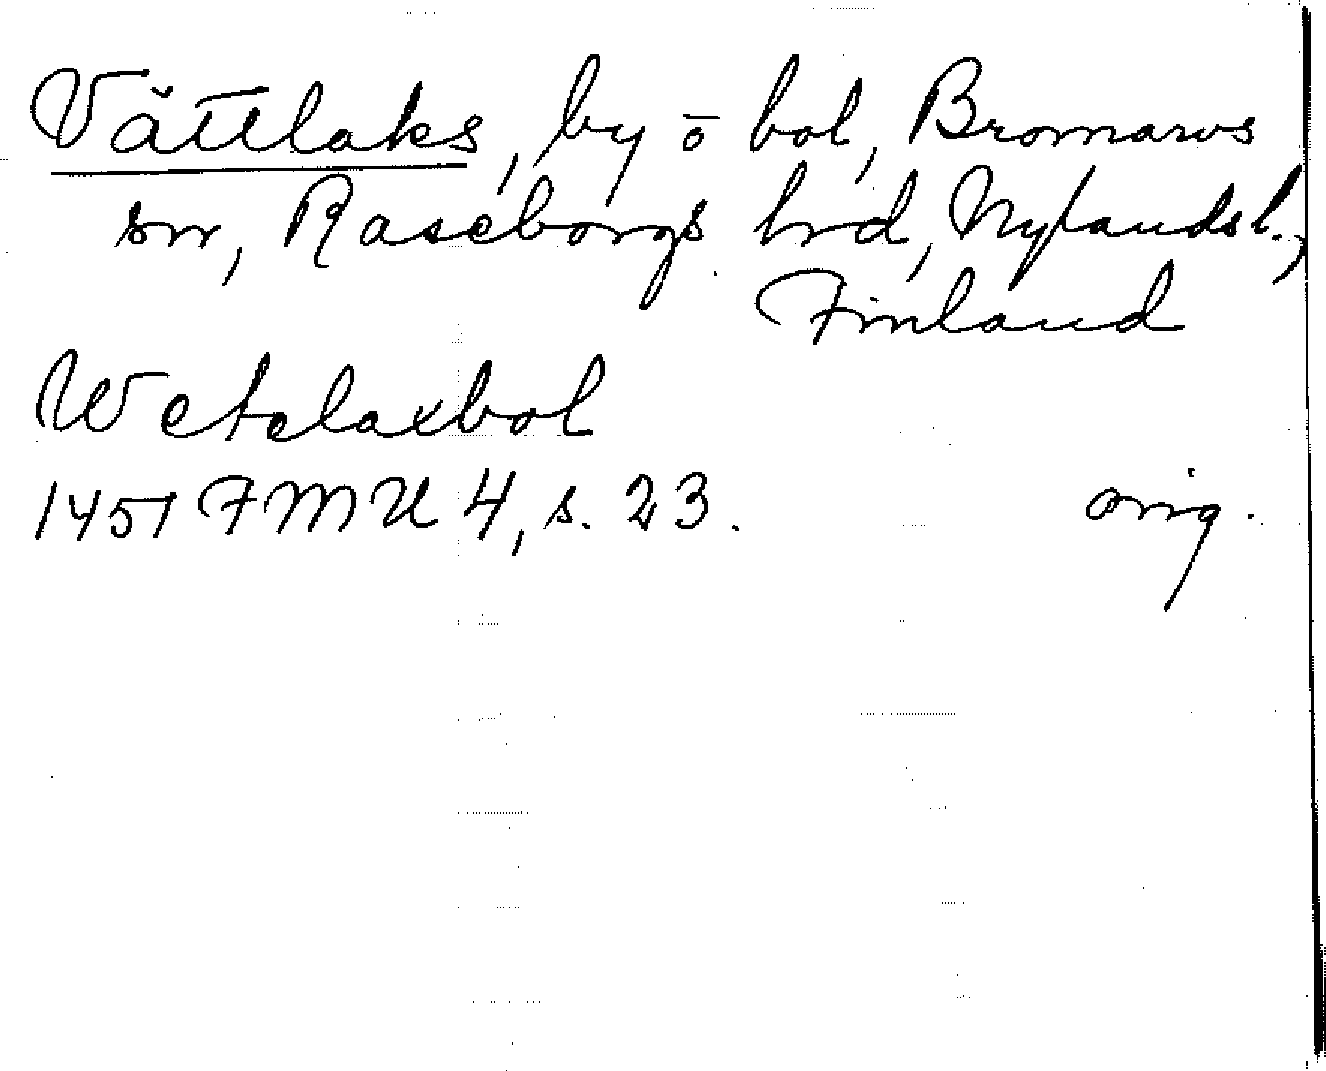 Vättlaks, by o bol, Bromarvs
sn, Raseborgs hrd, Nylands l.,
Finland
Wetelaxbol
1451 FMU 4, s. 23. orig.